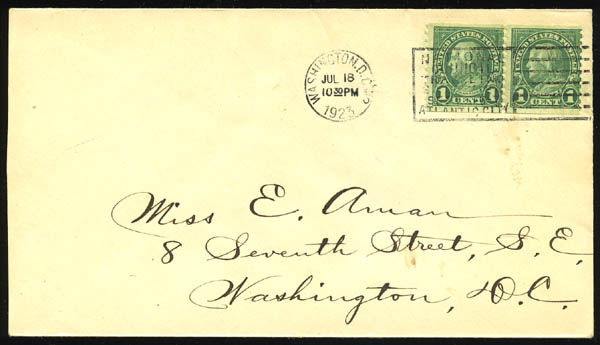 WASHINGTON, D.C.
JUL 18
10 30 PM
1923
UNITED STATES POSTAGE
1 CENT 1
UNITED STATES POSTAGE
1 CENT 1
ATLANTIC CITY
Miss E. Aman
8 Seventh Street, S.E.
Washington, D.C.